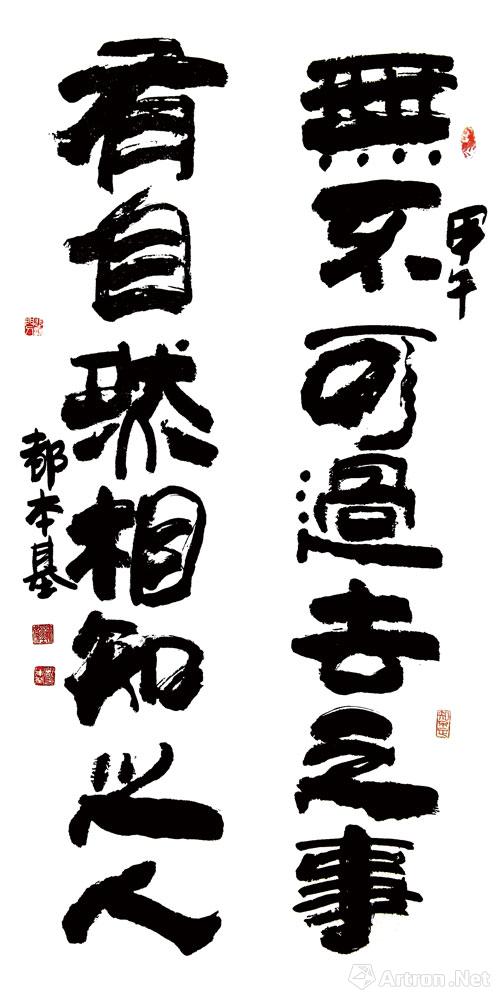 無不可過去之事
甲午
有自然相知之人
都本基
Artron.Net